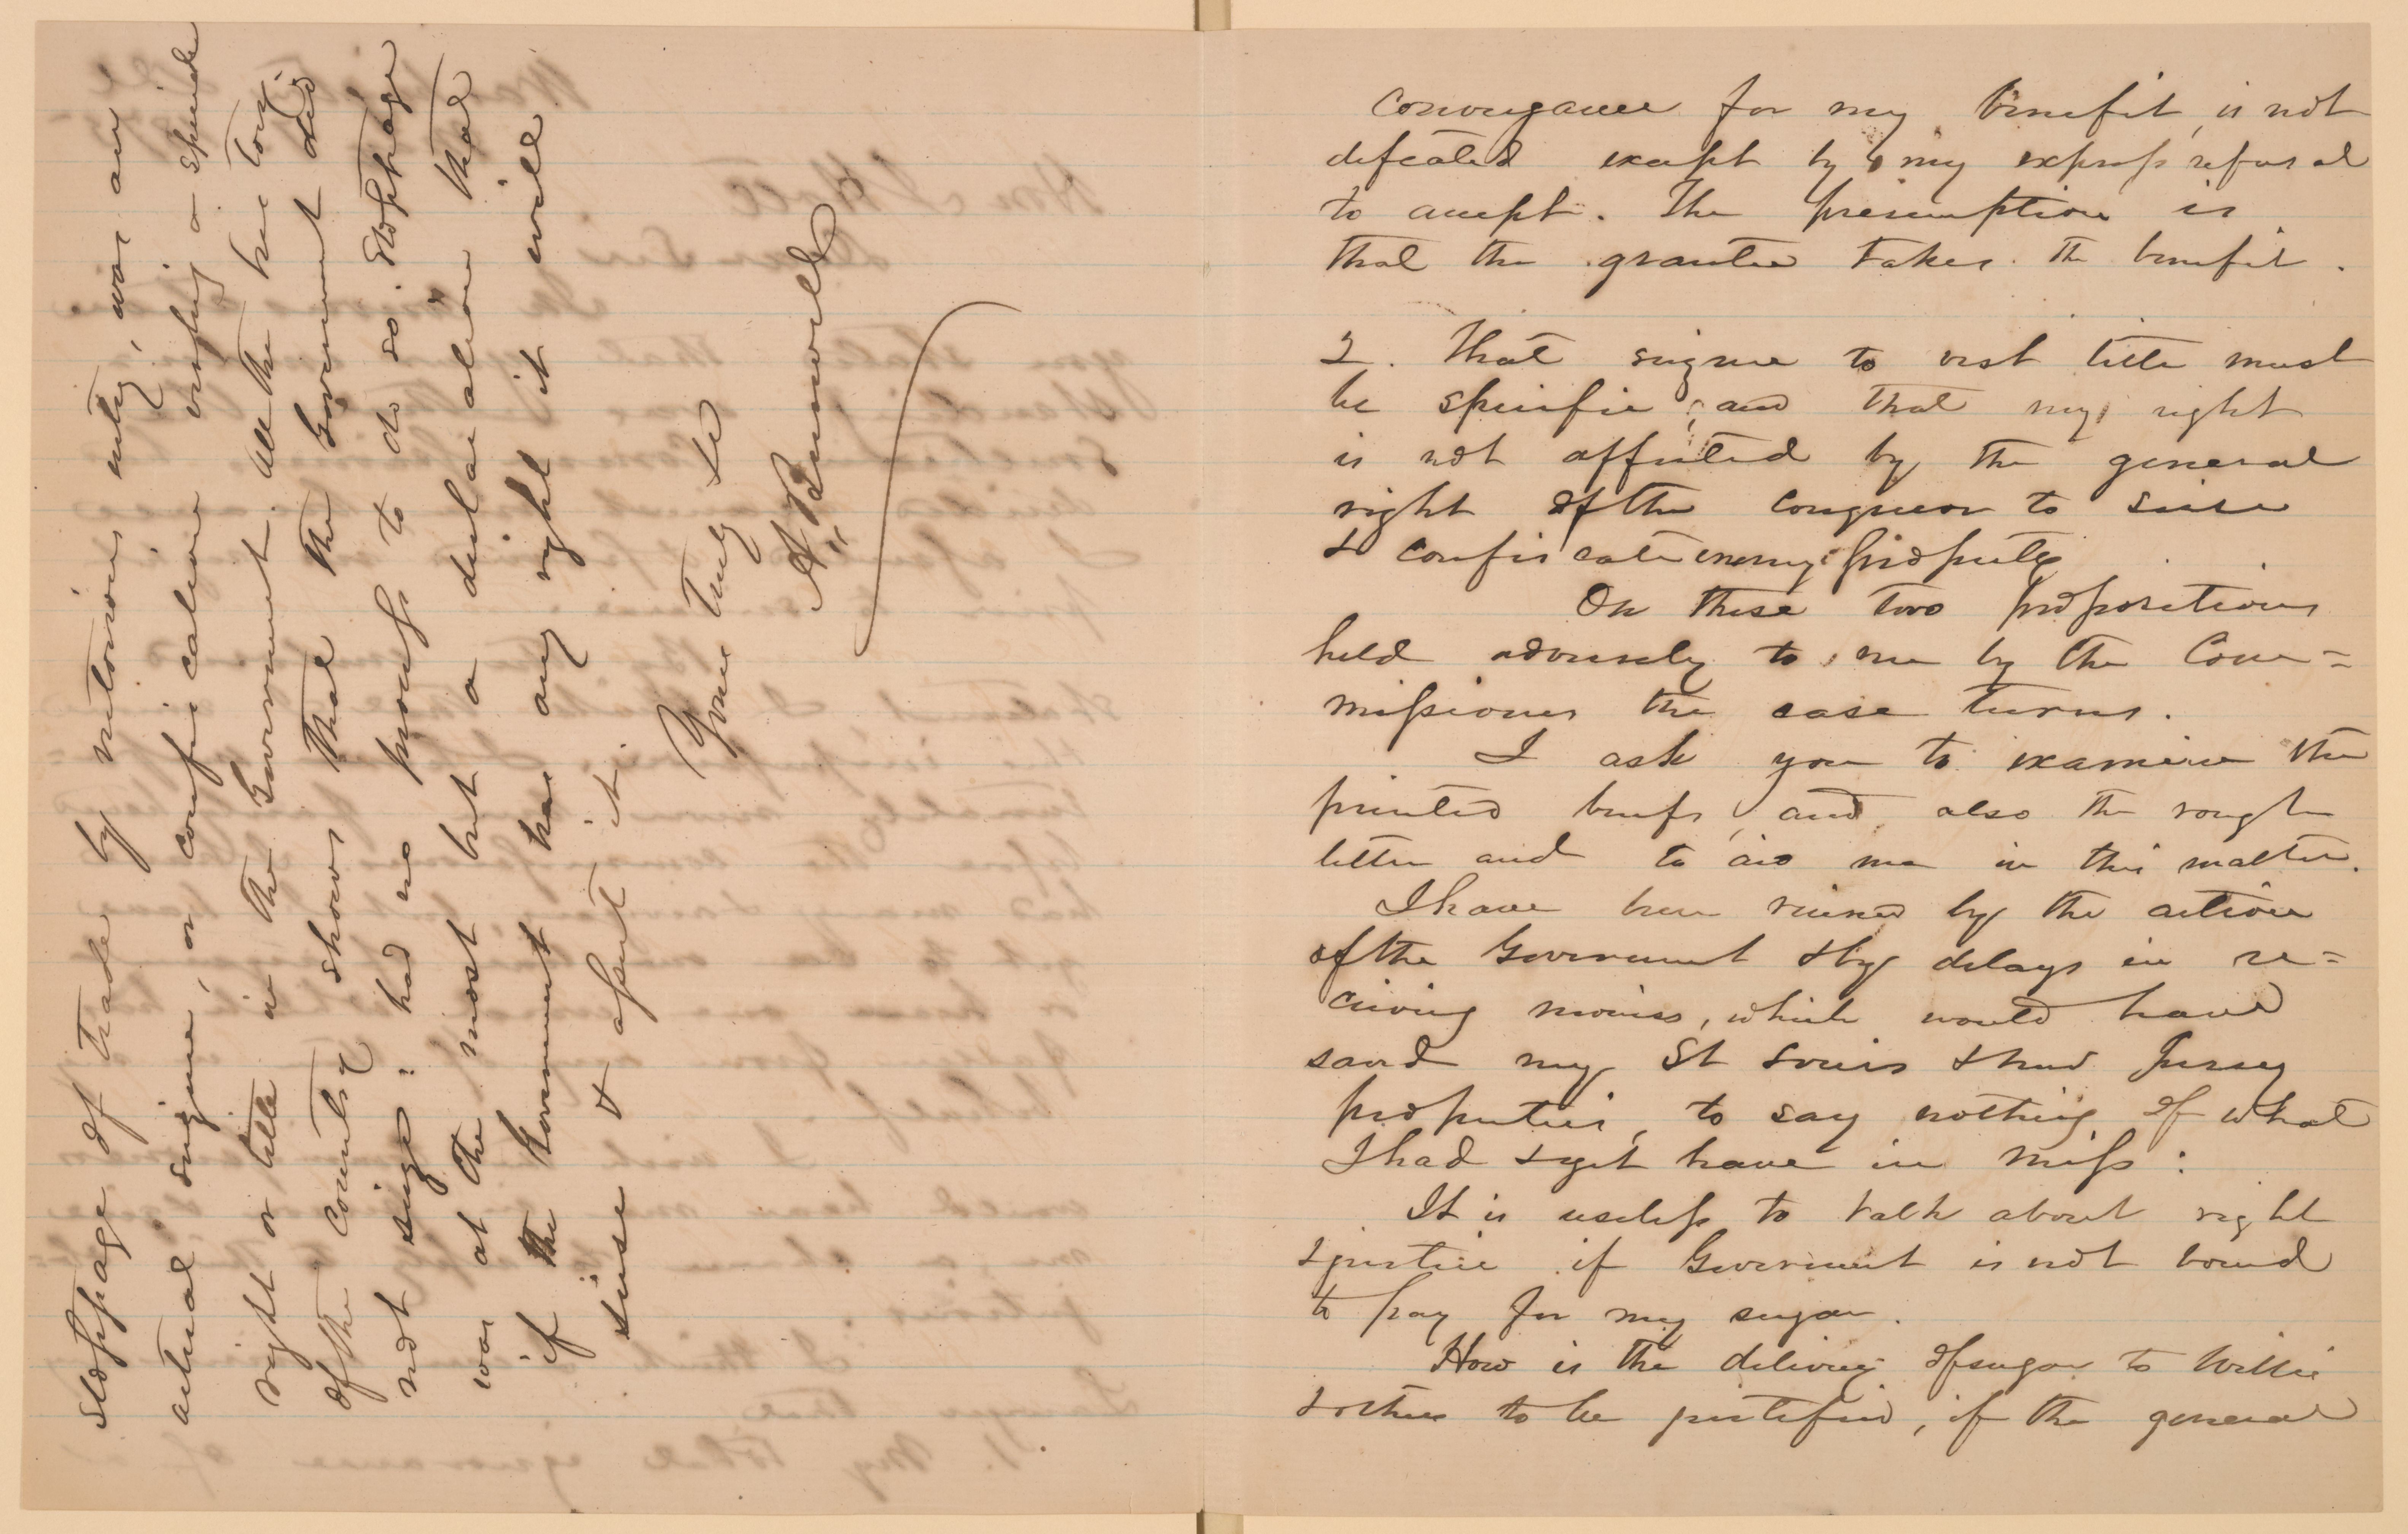 conveyance for my benefit, is not
defeated except by my express refusal
to accept. The presumption is
that the grantee takes the benefit.
2. That seizure to vest title must
be specific, and that my right
is not affected by the general
right of the conqueror to seise
& confiscate enemy's property
On these two propositions
held adversely to me by the Com=
missioner the case turns.
I ask you to examine the
printed briefs, and also the rough
letter and to aid me in this matter.
I have been ruined by the action
of the Goverment & by delays in re=
ceiving monies, which would have
saved my St Louis & New Jersey
properties, to say nothing of what
I had & yet have in Miss:
It is useless to talk about right
& justice if Goverment is not bound
to pay for my sugar.
How is the delivery of sugar to Willie
& others to be justified, if the general
stoppage of trade by notorious entry, was an
actual seizure, or confiscation vesting a specific
right or title in the Goverment. All the history
of the country shows that the Goverment did
not seize: had no power to do so. Stoppage
was at the most but a declaration that
if the Goverment has any right it will
seise & assert it.
Yours Truly &c
A Burwell